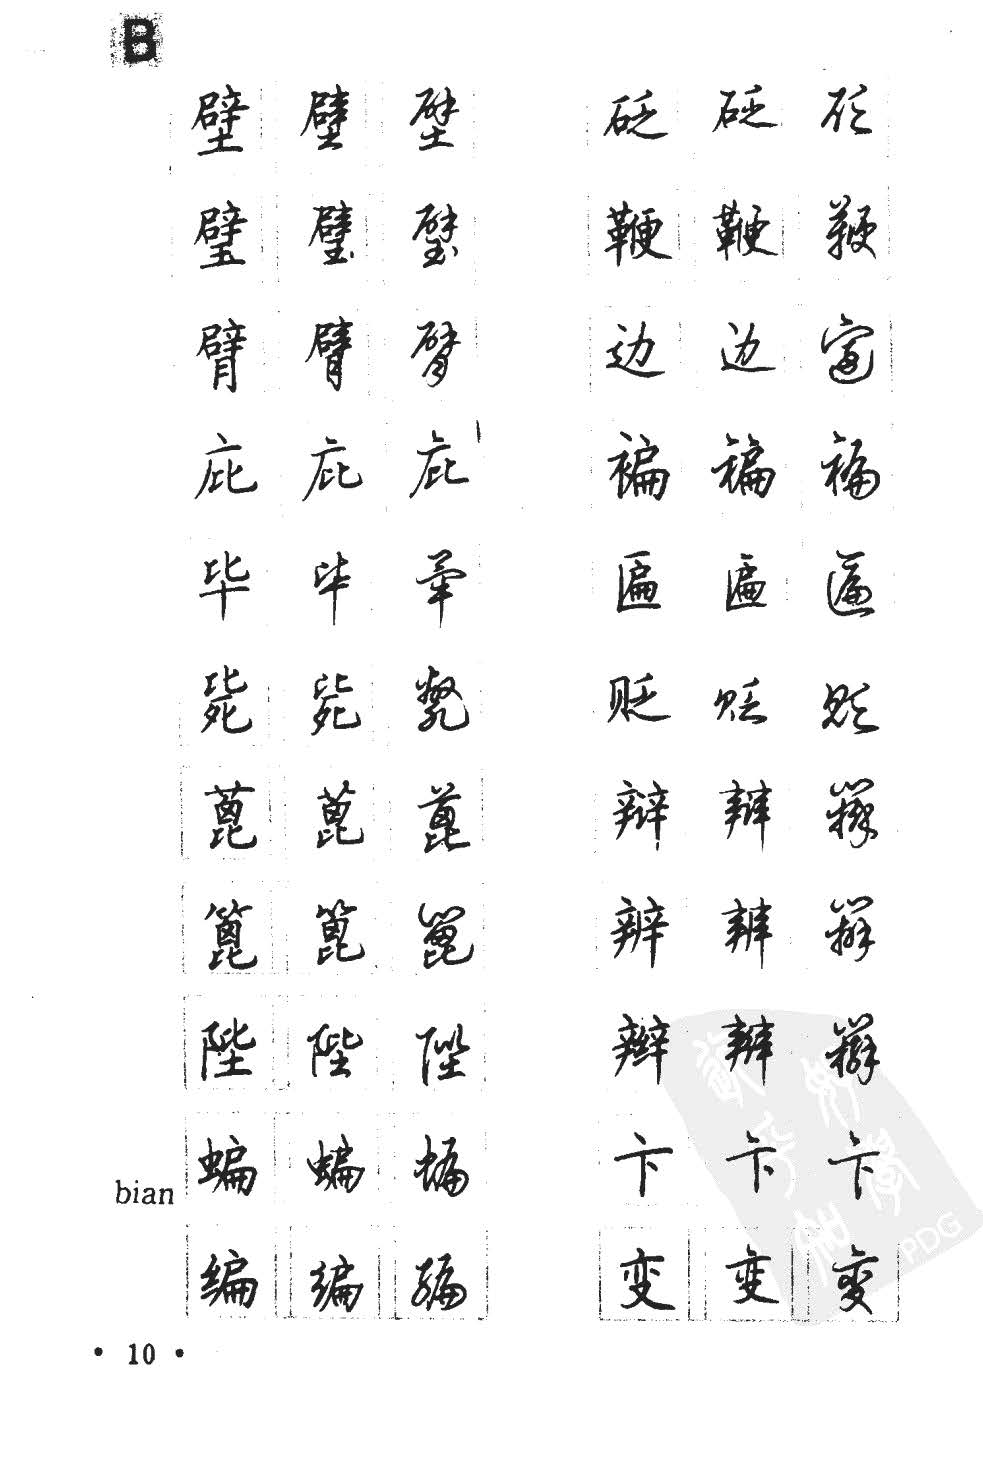 B
壁 壁 壁
璧 璧 璧
臂 臂 臂
庇 庇 庇
毕 毕 畢
毙 毙 斃
蓖 蓖 蓖
篦 篦 篦
陛 陛 陛
bian 蝙 蝙 蝙
编 编 編
砭 砭 砭
鞭 鞭 鞭
边 边 邊
褊 褊 褊
匾 匾 匾
贬 贬 貶
辩 辩 辯
辨 辨 辨
辫 辫 辮
卞 卞 卞
变 变 變
• 10 •
PDG